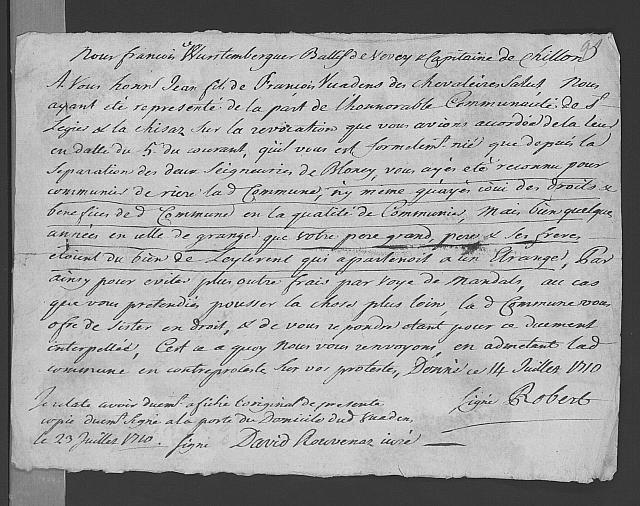 98
Nous francois Wurstemberguer Ballif de Vevey & Capitaine de Chillon
A Vous honn Jean fils de Francois Vuadens des Chevaleires Salut, Nous
ayant eté representé de la part de l'honnorable Communauté de St
Legier & la chisaz sur la revocation que vous avions accordée de la leur
en datte du 5e du courant, qu'il vous est formelemt nié que depuis la
Separation des deux Seigneuries de Blonay, vous ayés eté reconnu pour
communier de riere lad Commune, ny même qu'ayés joui des droits &
benefices de d Commune en la qualité de Communier, Mais bien quelque
années en celle de granger que votre pere grand pere & ses freres
etoient du bien de Leyterent qui appartenoit a un Etranger, Par
ainsy pour eviter plus outre frais par voye de Mandats, au cas
que vous pretendiés pousser la chose plus loin, la d Commune vous
ofre de sister en droit, & de vous repondre etant pour ce duement
interpellée, C'est a quoy Nous vous renvoyons, en admetant lad
commune en contreproteste sur vos protestes, Donné ce 14 Juillet 1710
Signé Robert
Je relate avoir duemt afiché l'original de presente
copie duemt Signé a la porte du Domicile dud Vuaden
le 23 Juillet 1710. Signé David Rouvenaz juré